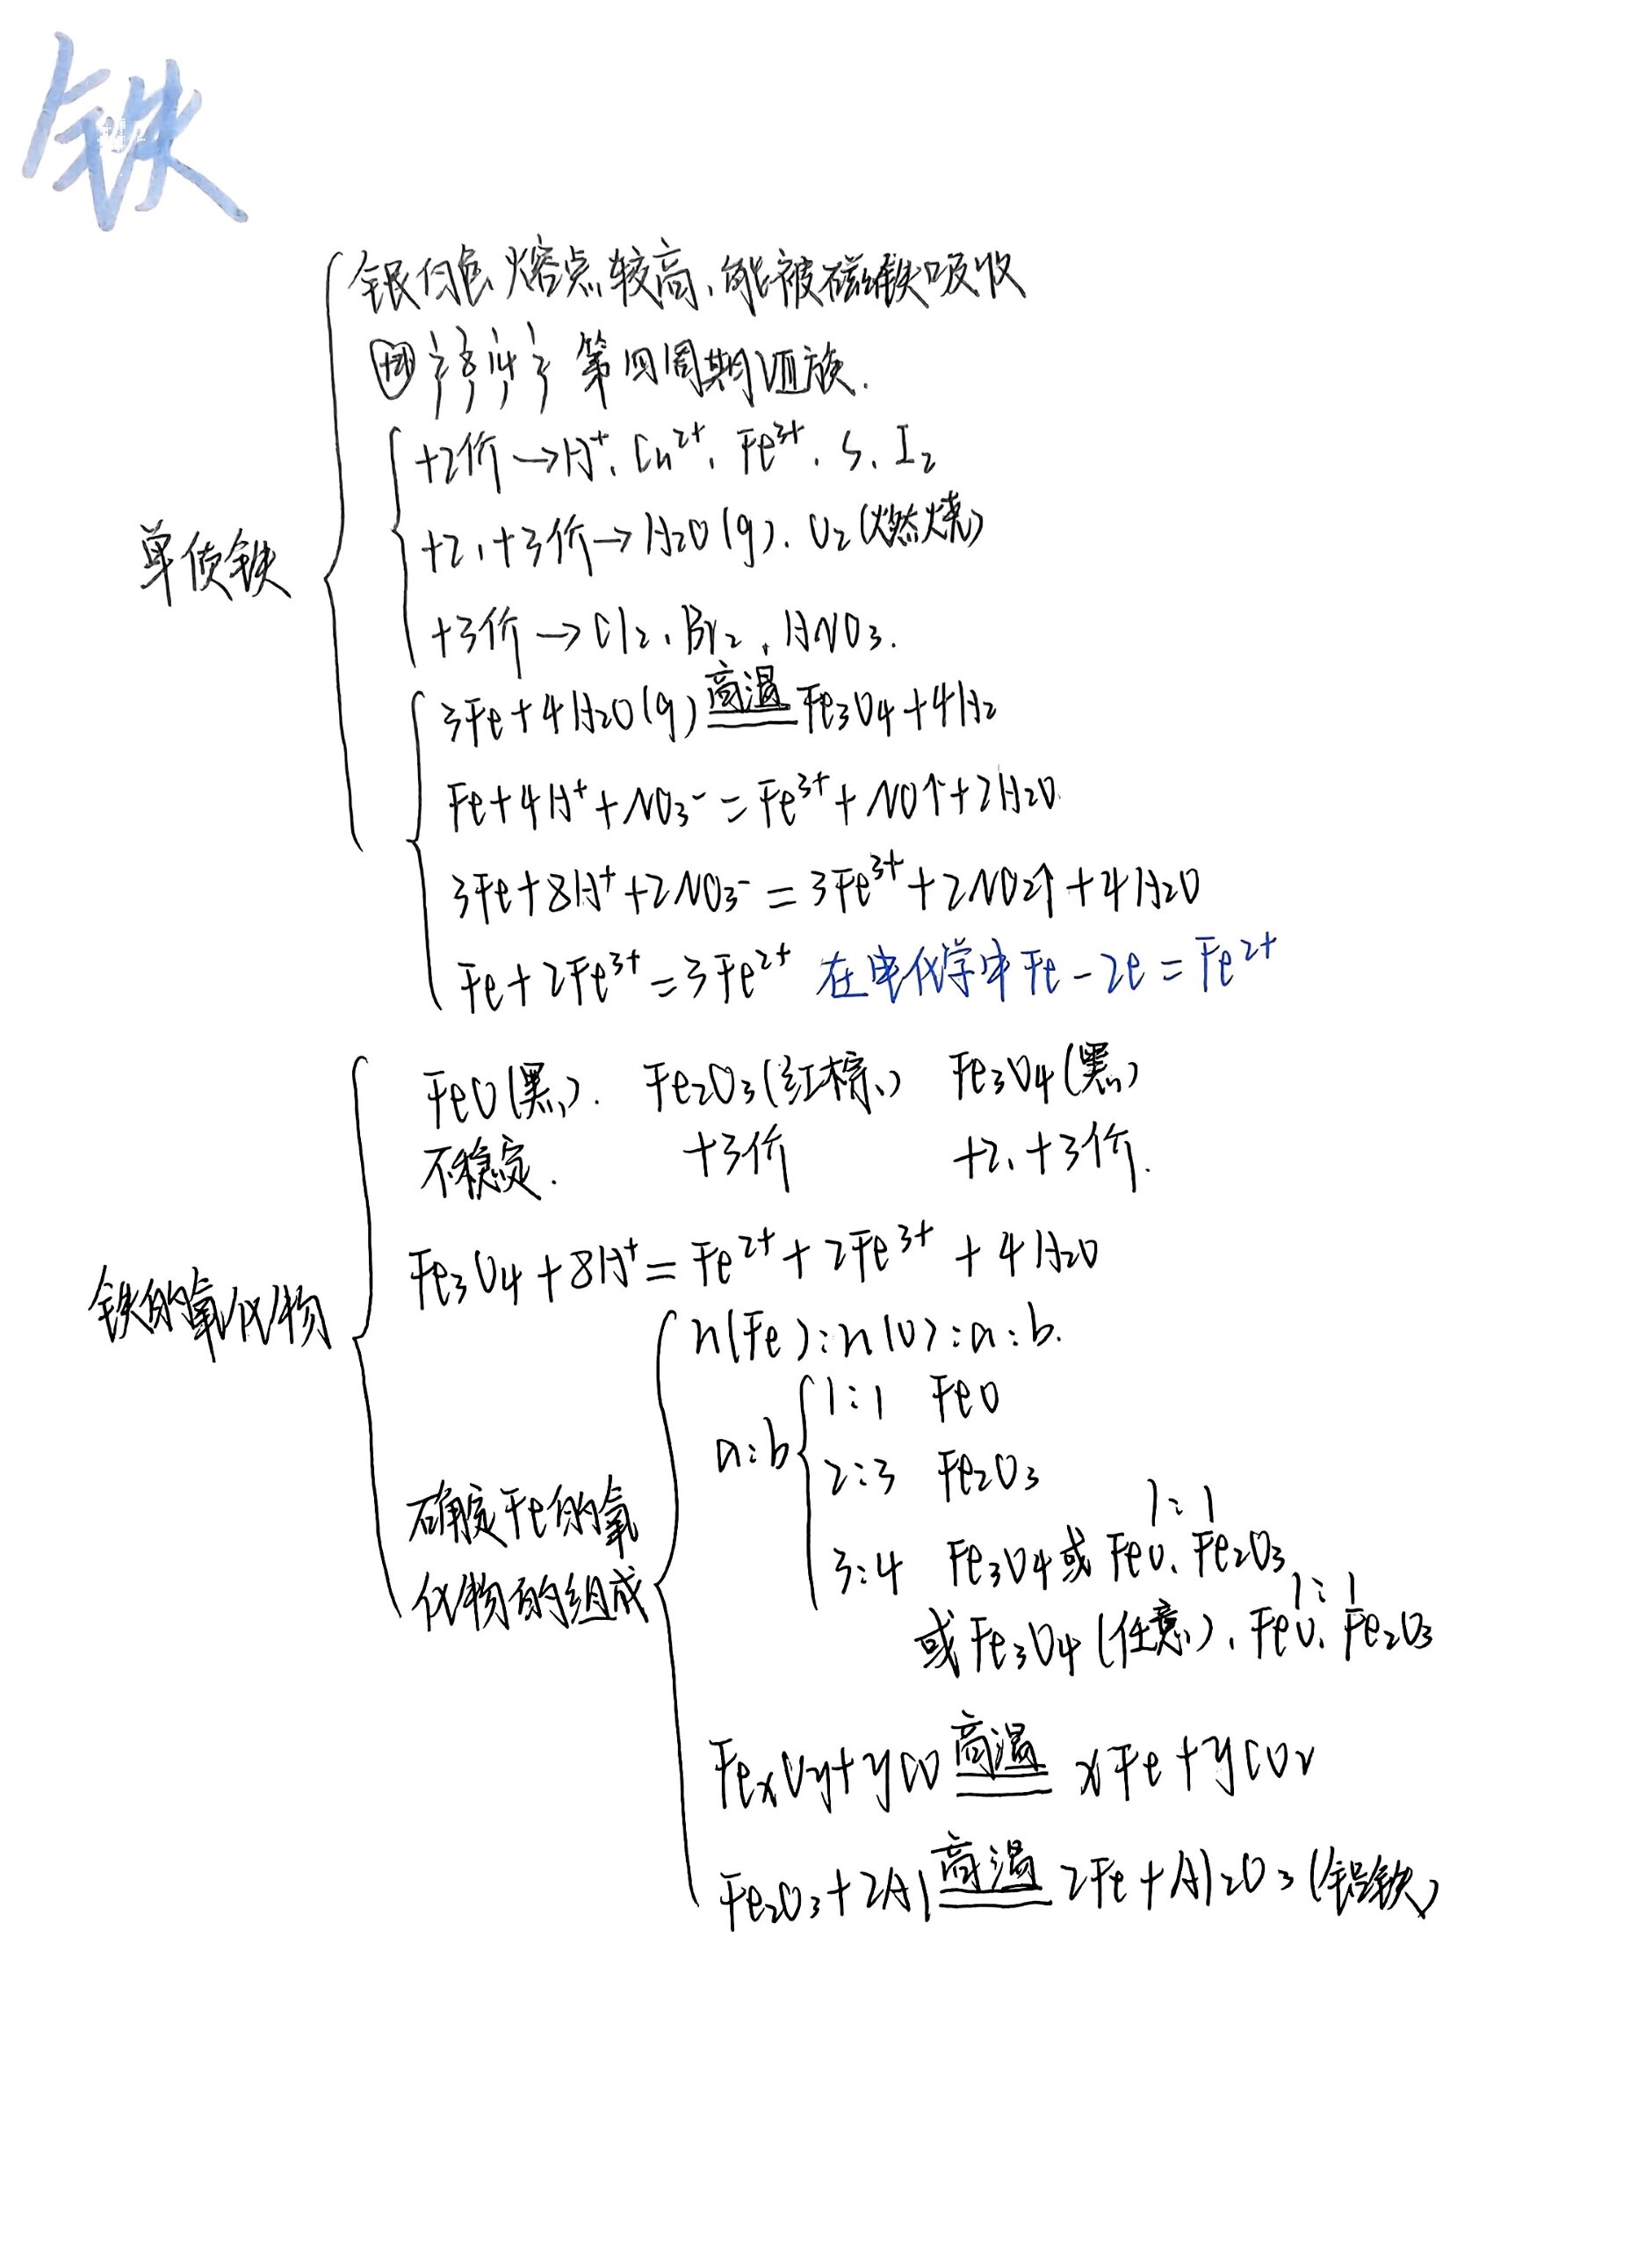 铁
银白色 熔点较高、能被磁铁吸收
+26 2 8 14 2 第四周期Ⅷ族.
+2价→H⁺、Cu²⁺、Fe³⁺、S、I₂
单质铁
+2、+3价→H₂O(g)、O₂(燃烧)
+3价→Cl₂、Br₂、HNO₃.
3Fe+4H₂O(g) 高温 Fe₃O₄+4H₂
Fe+4H⁺+NO₃⁻=Fe³⁺+NO↑+2H₂O.
3Fe+8H⁺+2NO₃⁻=3Fe³⁺+2NO₂↑+4H₂O
Fe+2Fe³⁺=3Fe²⁺ 在电化学中Fe-2e=Fe²⁺
FeO(黑). Fe₂O₃(红棕) Fe₃O₄(黑)
不稳定. +3价 +2、+3价.
Fe₃O₄+8H⁺=Fe²⁺+2Fe³⁺+4H₂O
铁的氧化物
n(Fe):n(O):a:b.
1:1 FeO
a:b
2:3 Fe₂O₃
1:1
3:4 Fe₃O₄或FeO、Fe₂O₃
确定Fe的氧
化物的组成
1:1
或Fe₃O₄(任意)、FeO、Fe₂O₃
FexOy+yCO 高温 xFe+yCO₂
Fe₂O₃+2Al 高温 2Fe+Al₂O₃(铝铁)